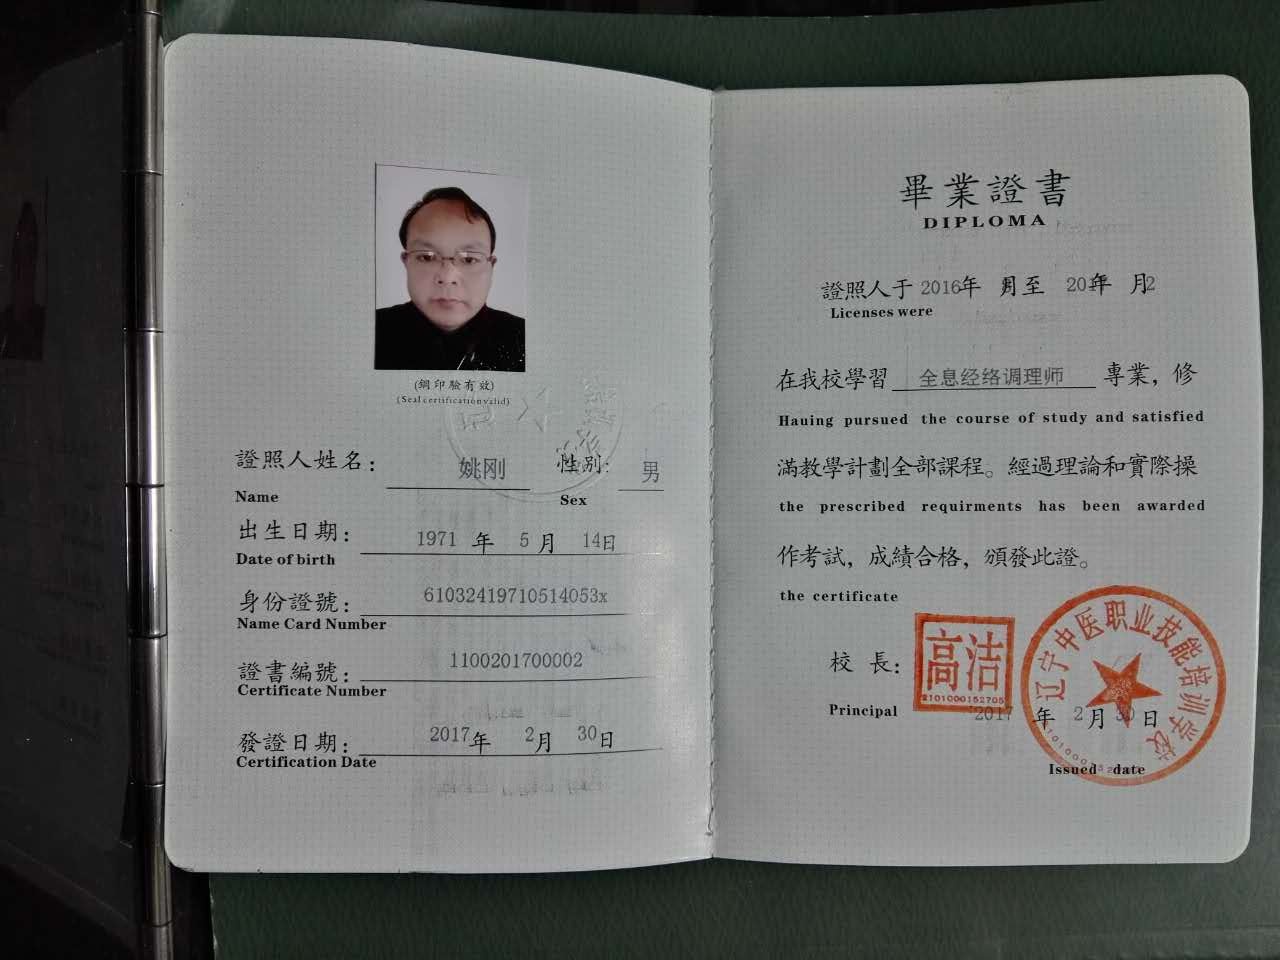 (鋼印驗有效)
(Seal certification valid)
證照人姓名： 姚刚 性别: 男
Name Sex
出生日期： 1971 年 5 月 14日
Date of birth
身份證號： 61032419710514053x
Name Card Number
證書編號： 1100201700002
Certificate Number
發證日期： 2017年 2月 30日
Certification Date
畢業證書
DIPLOMA
證照人于 2016年 月至 20 年 月2
Licenses were
在我校學習 全息经络调理师 專業，修
Hauing pursued the course of study and satisfied
滿教學計劃全部課程。經過理論和實際操
the prescribed requirments has been awarded
作考試，成績合格，頒發此證。
the certificate
校 長： 高洁
2101000152705
Principal
2017 年 2月 30日
Issued date
辽宁中医职业技能培训学校